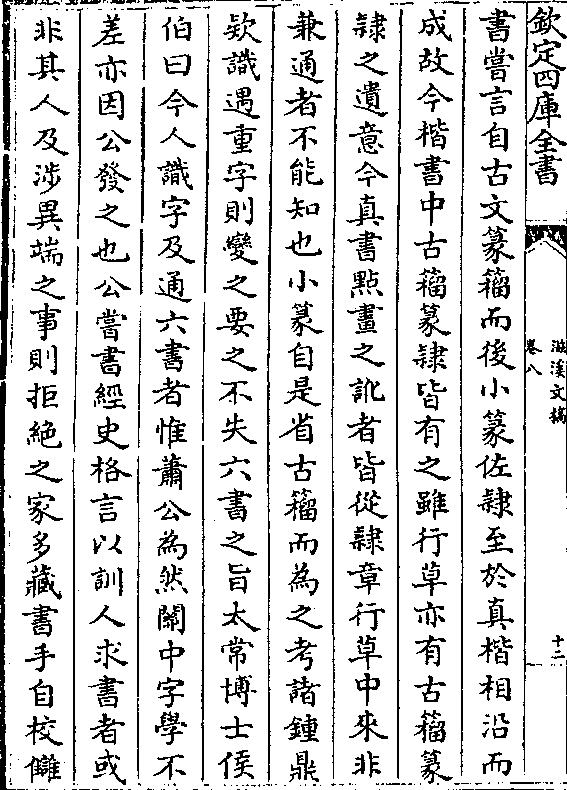 欽定四庫全書
滋溪文稿
卷八
十二
書嘗言自古文篆籀而後小篆佐隸至於真楷相沿而
成故今楷書中古籀篆隸皆有之雖行草亦有古籀篆
隸之遺意今真書㸃畫之訛者皆從隸章行草中來非
兼通者不能知也小篆自是省古籀而為之考諸鍾鼎
欵識遇重字則變之要之不失六書之旨太常博士侯
伯曰今人識字及通六書者惟蕭公為然關中字學不
差亦因公發之也公嘗書經史格言以訓人求書者或
非其人及涉異端之事則拒絶之家多藏書手自校讎